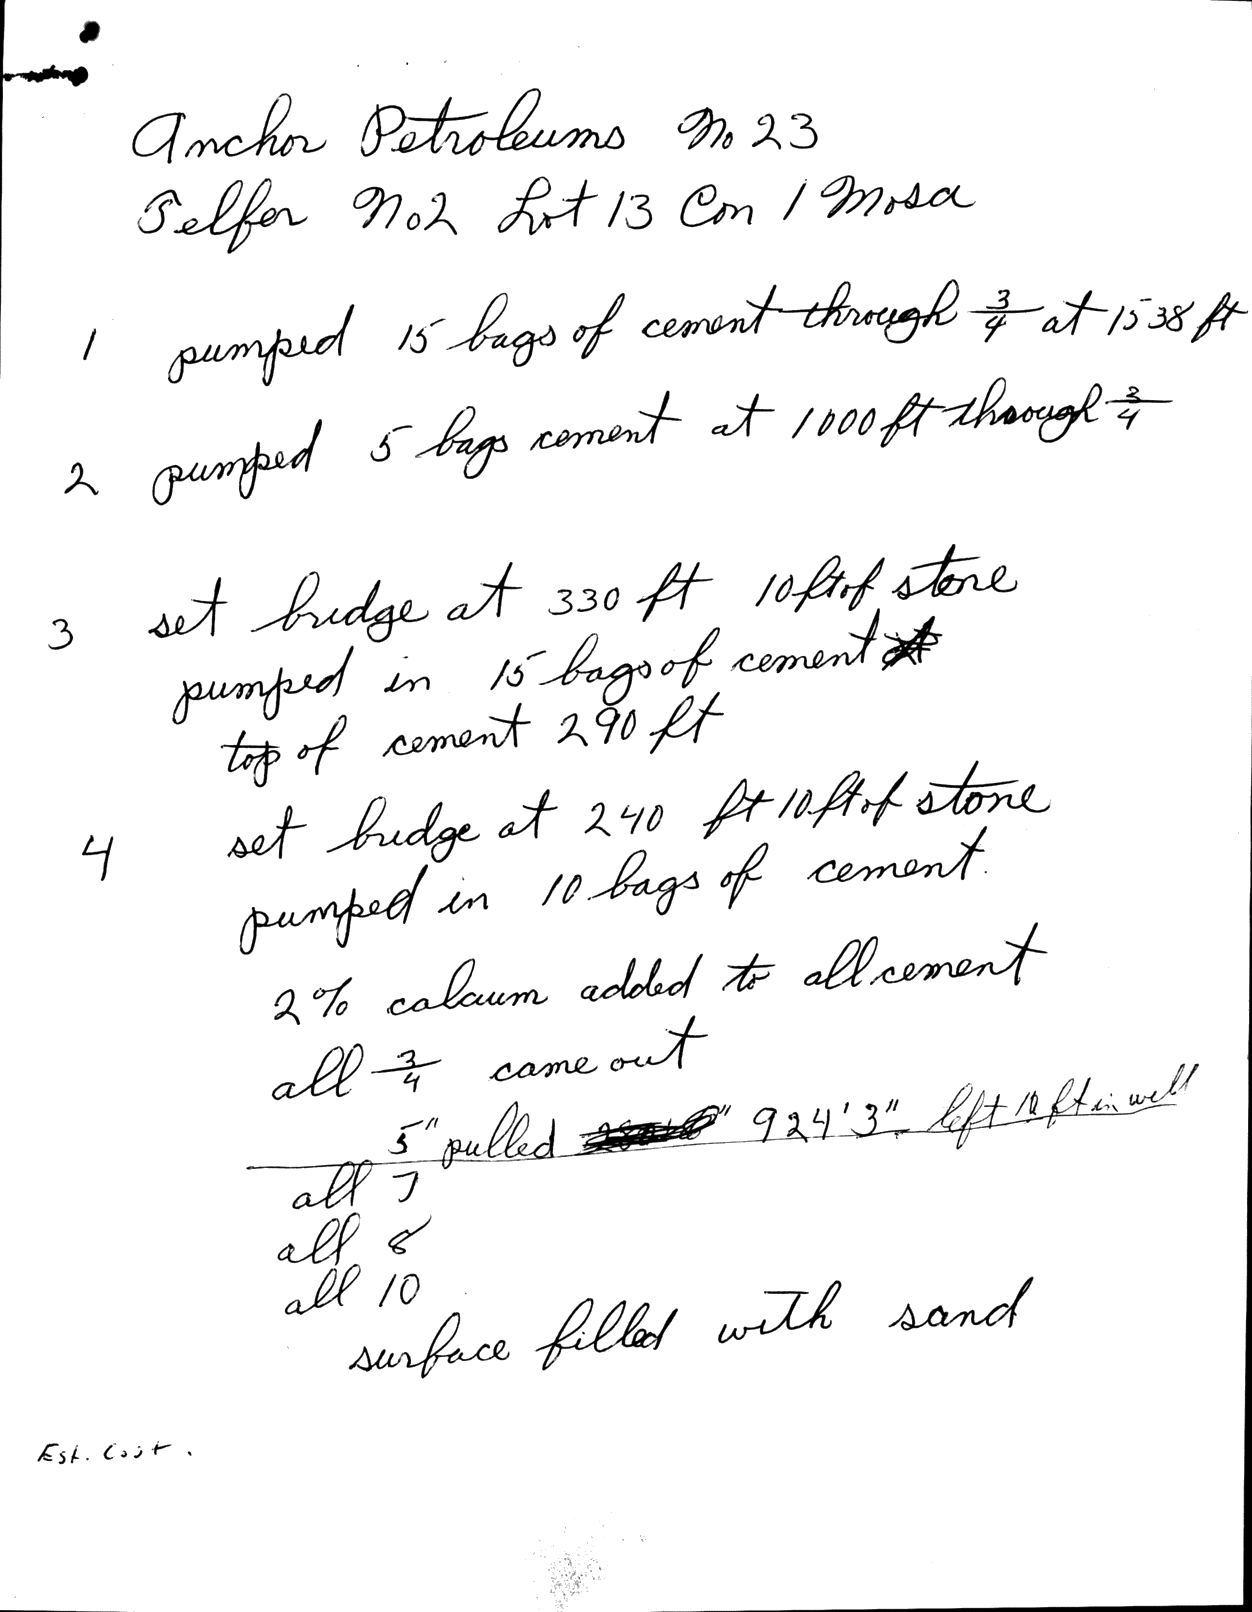 Anchor Petroleums No 23
Telfer No2 Lot 13 Con 1 Mosa
1 pumped 15 bags of cement through 3/4 at 1538 ft
2 pumped 5 bags cement at 1000 ft through 3/4
3 set bridge at 330 ft 10 ft of stone
pumped in 15 bags of cement
top of cement 290 ft
4 set bridge at 240 ft 10 ft of stone
pumped in 10 bags of cement.
2% calcium added to all cement
all 3/4 came out
5" pulled 924' 3" left 12 ft in well
all 7
all 8
all 10
surface filled with sand
Est. Cost.